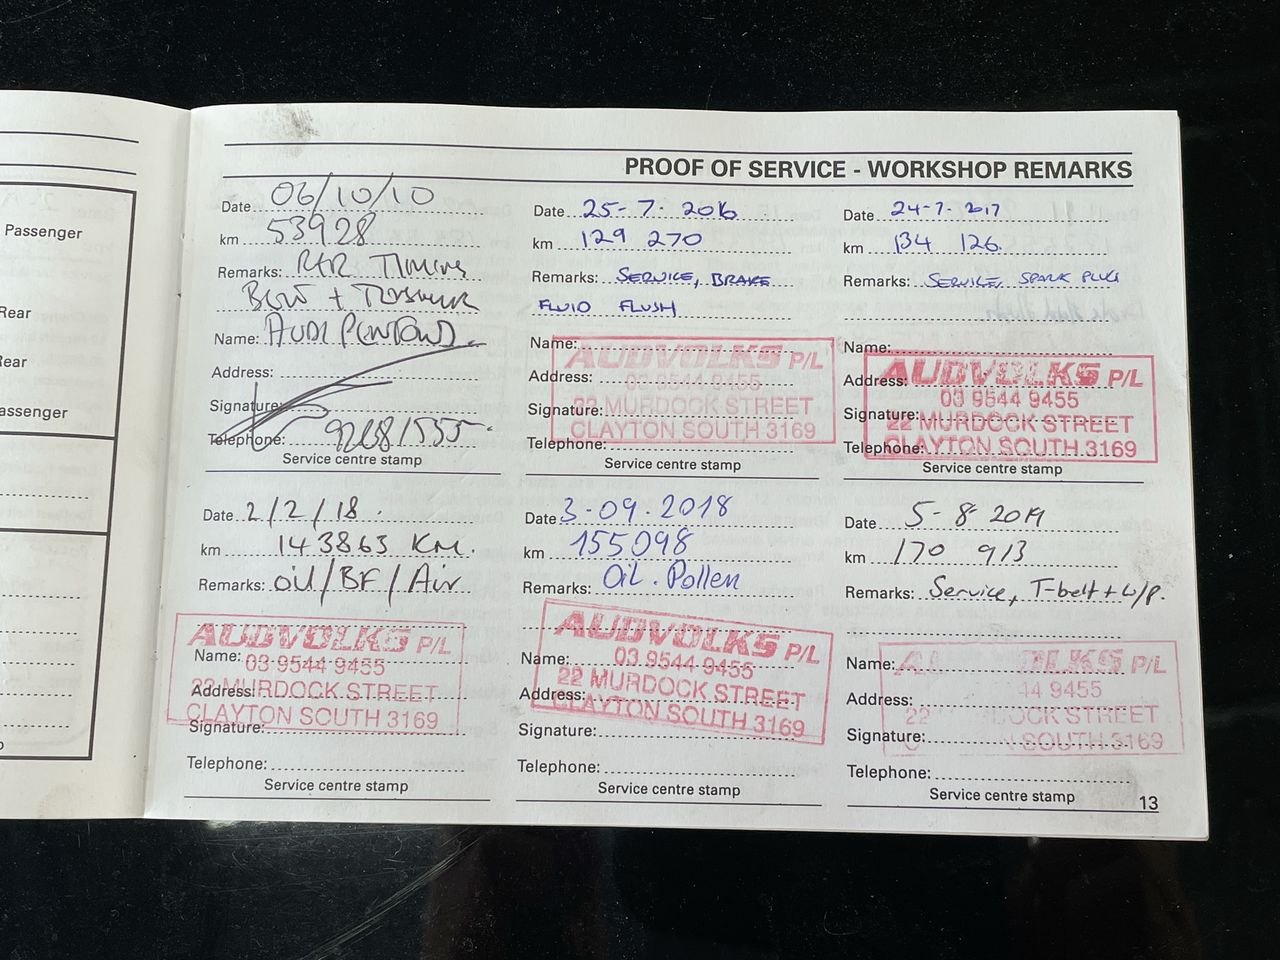 Passenger
Rear
ear
assenger
PROOF OF SERVICE - WORKSHOP REMARKS
Date 06/10/10
km 53928
Remarks: R+R TIMING
BELT + TENSIONER
Name: AUDI PENFOLD
Address:
Signature:
Telephone: 92681555
Service centre stamp
Date 25-7. 2016
km 129 270
Remarks: SERVICE, BRAKE
FLUID FLUSH
Name:
Address:
Signature:
Telephone:
AUDVOLKS P/L
03 9544 9455
22 MURDOCK STREET
CLAYTON SOUTH 3169
Service centre stamp
Date 24-7-2017
km 134 126.
Remarks: SERVICE, SPARK PLUG
Name:
Address:
Signature:
Telephone:
AUDVOLKS P/L
03 9544 9455
22 MURDOCK STREET
CLAYTON SOUTH 3169
Service centre stamp
Date 2/2/18.
km 143863 KM.
Remarks: oil/BF/Air
AUDVOLKS P/L
03 9544 9455
22 MURDOCK STREET
CLAYTON SOUTH 3169
Name:
Address:
Signature:
Telephone:
Service centre stamp
Date 3-09.2018
km 155098
Remarks: OiL. Pollen
AUDVOLKS P/L
03 9544 9455
22 MURDOCK STREET
CLAYTON SOUTH 3169
Name:
Address:
Signature:
Telephone:
Service centre stamp
Date 5-8-2019
km 170 913
Remarks: Service, T-belt + w/p.
A OLKS P/L
44 9455
22 OCK STREET
C N SOUTH 3169
Name:
Address:
Signature:
Telephone:
Service centre stamp
13